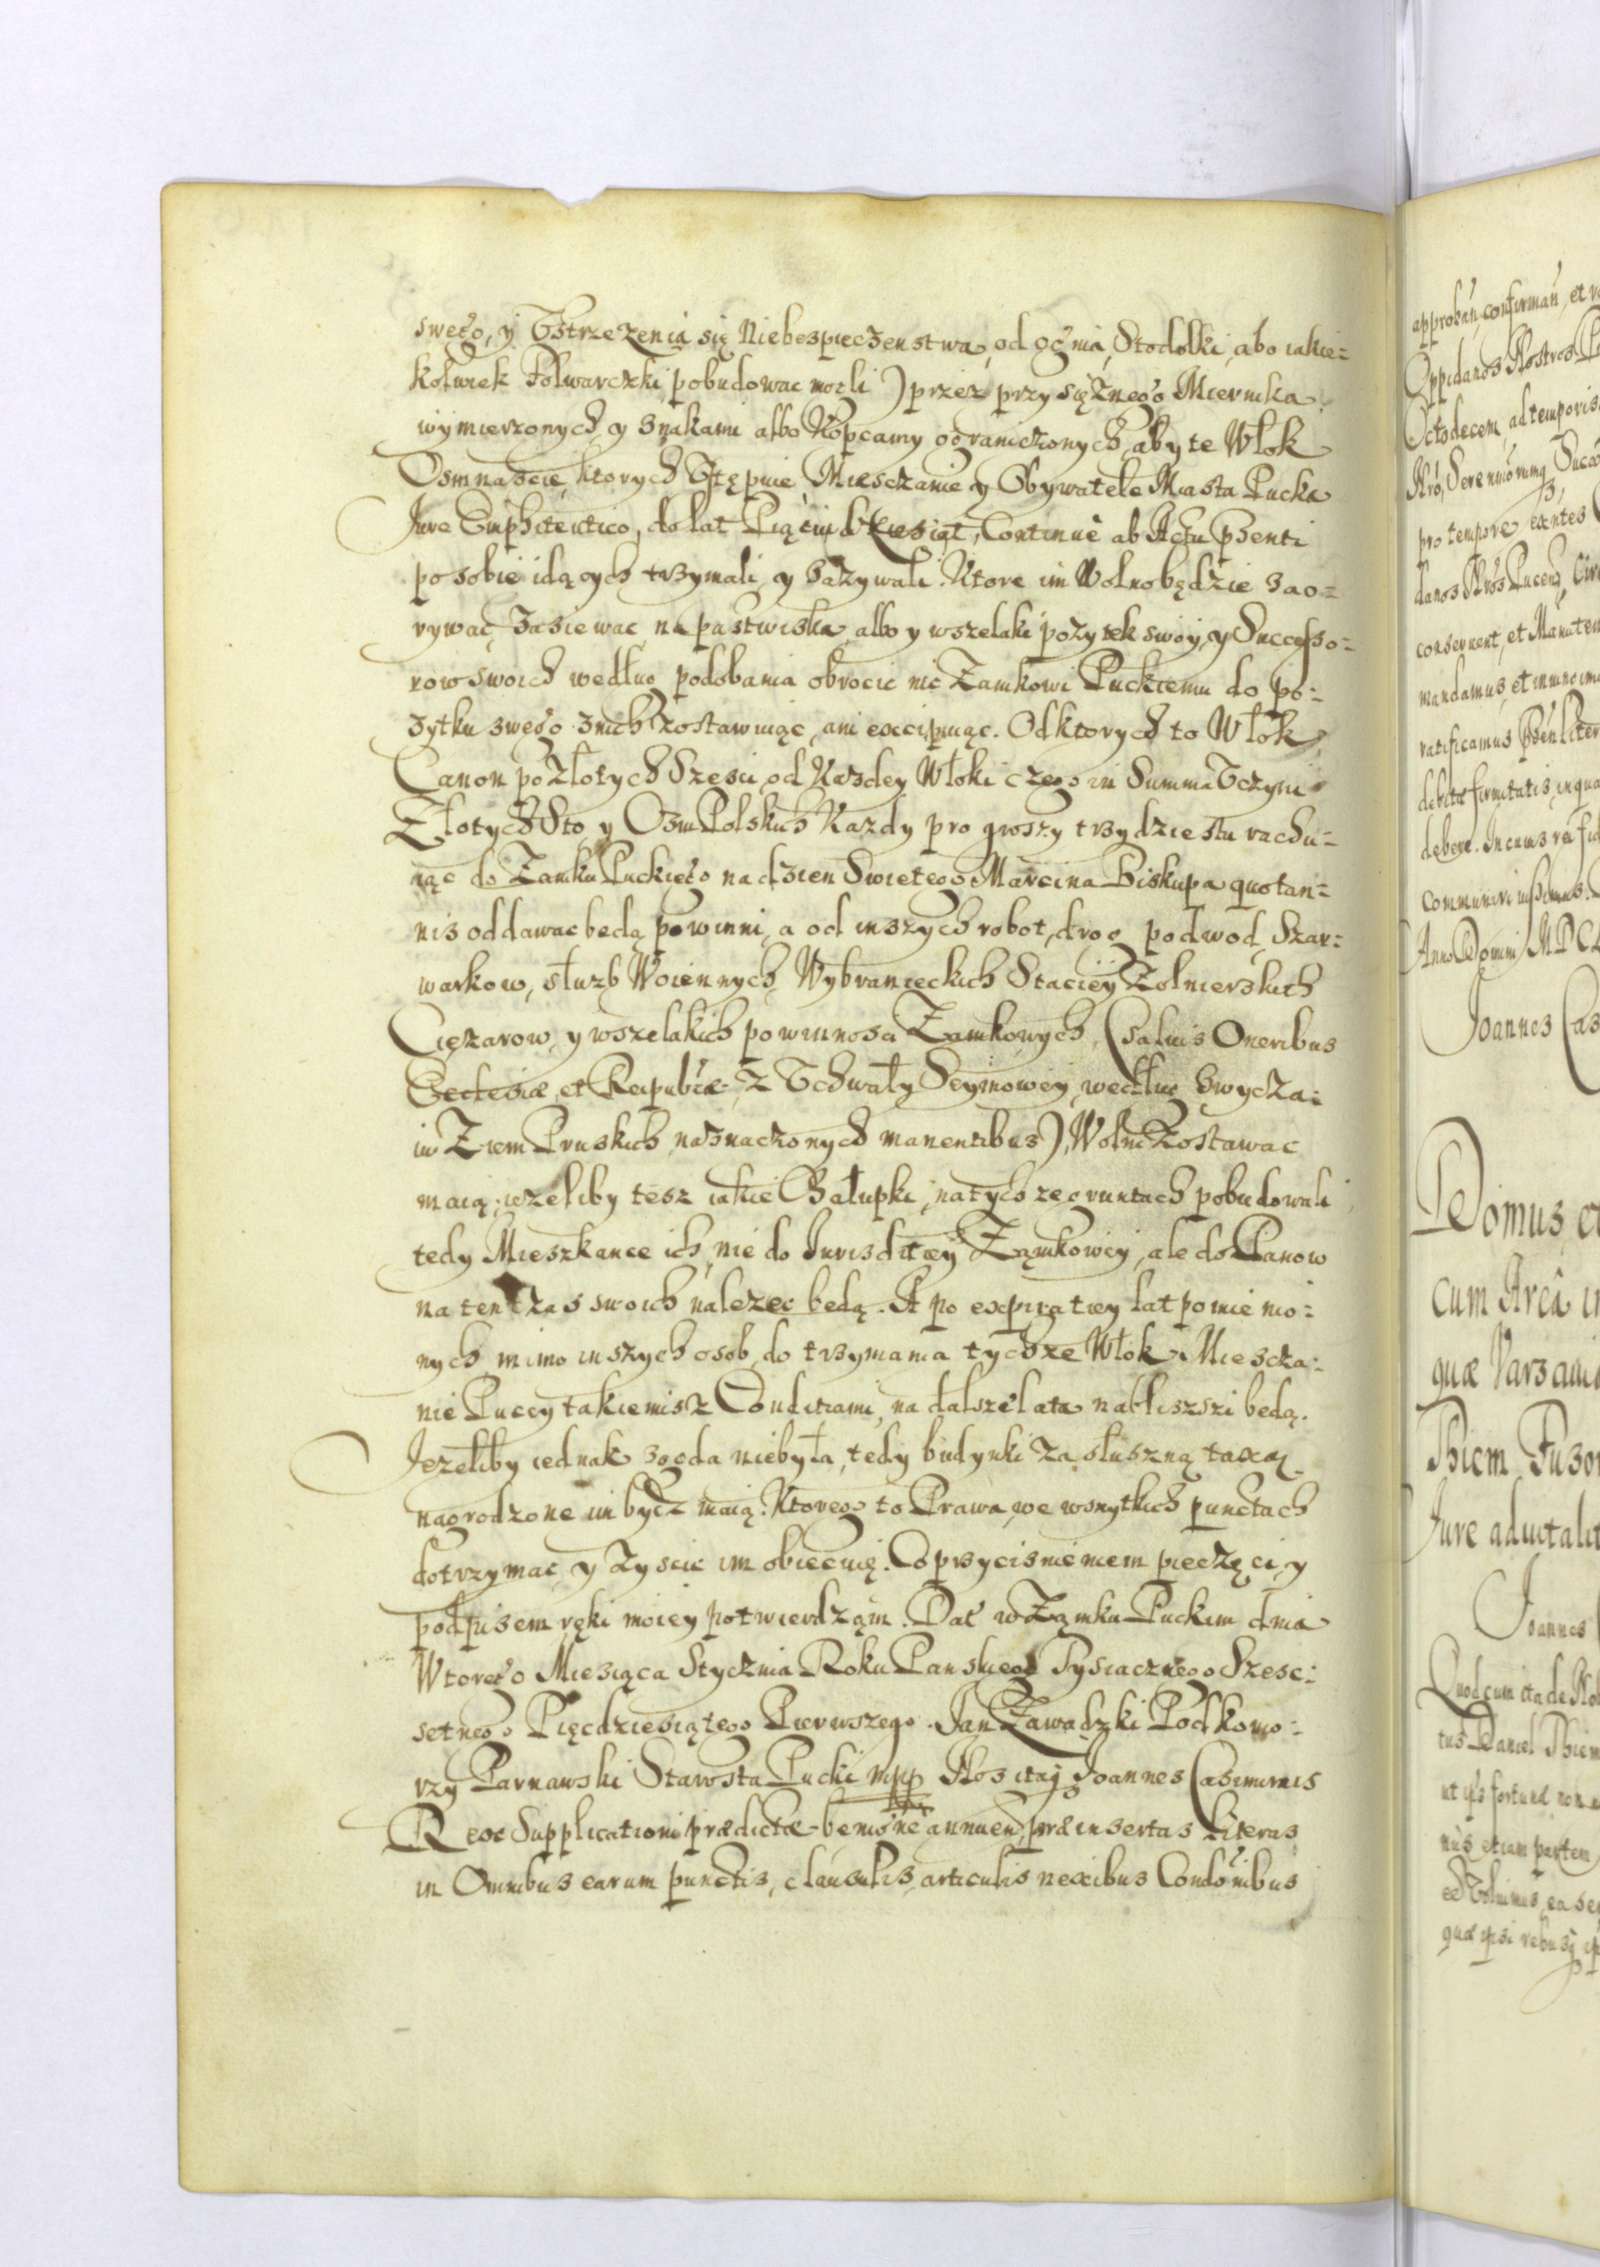 swego, y Ustrzezenia się Niebespieczenstwa, od ognia, Stodolki, abo iakie-
kolwiek Folwarczki, pobudowac mogli) przez przysięznego Miernika
wymierzonych, y znakami albo Kopcamy ograniczonych, aby te Włok
Osmnascie, ktorych Ustępuie, Miesczanie y Obywatele Miasta Pucka
Jure Emphiteutico, do lat Pięciudziesiąt, Continuè ab Actu psenti
po sobie idących trzymali, y zazywali. Ktore im Wolno będzie zao-
rywać, zasiewac, na pastwiska, albo y wszelaki pozytek swoy, y Successo-
row swoich według podobania obrocic nic Zamkowi Puckiemu do po-
zytku swego z nich zostawuiąc, ani excipuiąc. Od ktorych to Włok
Canon po Złotych Szesci, od Kazdey Włoki czego in Summa Uczyni
Złotych Sto y Osm Polskich Kazdy pro groszy trzydziestu rachu-
iąc do Zamku Puckiego na dzien Swietego Marcina Biskupa quotan-
nis oddawac będą powinni, a od inszych robot, drog, podwod, Szar-
warkow, słuzb Woiennych, Wybranieckich Staciey Zolnierskich
Cięzarow, y wszelakich powinnosci Zamkowych, (salvis Oneribus
Ecclesiæ, et Reipubcæ z Uchwały Seymowey, według zwycza-
iu Ziem Pruskich, naznaczonych manentibus), Wolni Zostawac
maią, iezeliby tesz iakie Chałupki, na tychze gruntach pobudowali
tedy Mieszkance ich, nie do Jurisditiey Zamkowey, ale do Panow
na ten Czas swoich nalezec będą. A po expiratiey lat pomienio-
nych, mimo inszych osob, do trzymania tychze Włok Miescza-
nie Puccy takiemisz Conditiami, na dalsze lata nabliszszi będą.
Jezeliby iednak zgoda niebyła, tedy budynki za słuszną taxą
nagrodzone im bydz maią. Ktorego to Prawa, we wsnytkich punctach
dotrzymac, y ziscic im obiecuię. Co przycisnieniem pieczęci, y
podpisem ręki moiey potwierdząm. Dat w Zamku Puckim dnia
Wtorego Miesiąca Stycznia Roku Panskiego Tysiącznego Szesc-
setnego Pięcdziesiątego Pierwszego. Jan Zawadzki Podkomo-
rzy Parnawski Starosta Pucki mpp Nos itaq Joannes Casimirus
Rex Supplicationi prædictæ benigne annuen, præinsertas Literas
in Omnibus earum punctis, clausulis, articulis nexibus Condonibus
approban, confirman, et
Oppidanos Nostros
Octodecem, ad temporis
pro tempore exntes
conservent, et Manuten
mandamus, et
ratificamus
debitæ firmitatis, in qua
debere. In cuius rei fid
communiri iussimus.
Anno Domini MDCL
Joannes Cas
Domus et
cum Areâ in
quæ Varsavi
Thiem Fusor
Jure aduitalit
Joannes
Quod cum ita de
tus Daniel Thiem